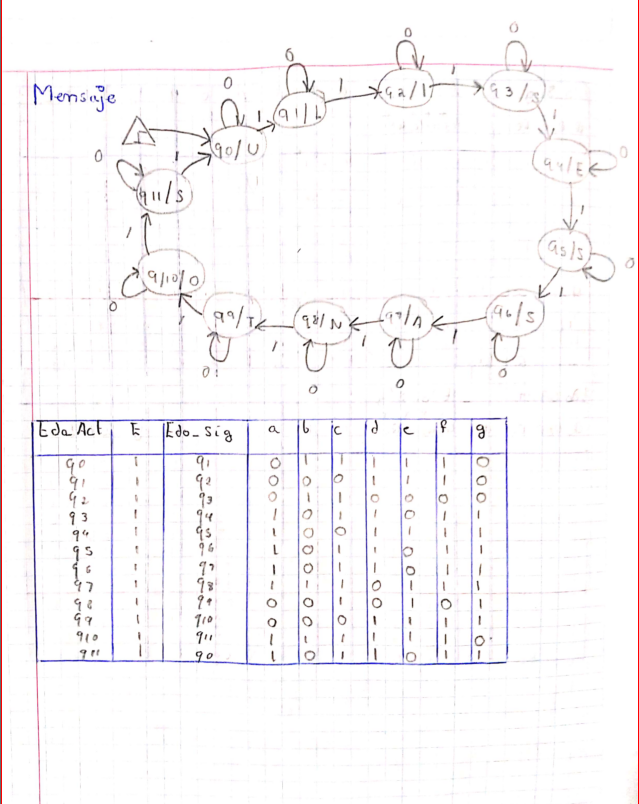 Mensaje
0
0
0
0
q0/U
1
q1/L
1
q2/I
1
q3/S
1
q4/E
0
1
q5/S
0
1
q6/S
0
1
q7/A
0
1
q8/N
0
1
q9/T
0
1
q10/O
0
1
q11/S
0
1
Edo Act E Edo_Sig a b c d e f g
q0 1 q1 0 1 1 1 1 1 0
q1 1 q2 0 0 0 1 1 1 0
q2 1 q3 0 1 1 0 0 0 0
q3 1 q4 1 0 1 1 0 1 1
q4 1 q5 1 0 0 1 1 1 1
q5 1 q6 1 0 1 1 0 1 1
q6 1 q7 1 0 1 1 0 1 1
q7 1 q8 1 1 1 0 1 1 1
q8 1 q9 0 0 1 0 1 0 1
q9 1 q10 0 0 0 1 1 1 1
q10 1 q11 1 1 1 1 1 1 0
q11 1 q0 1 0 1 1 0 1 1